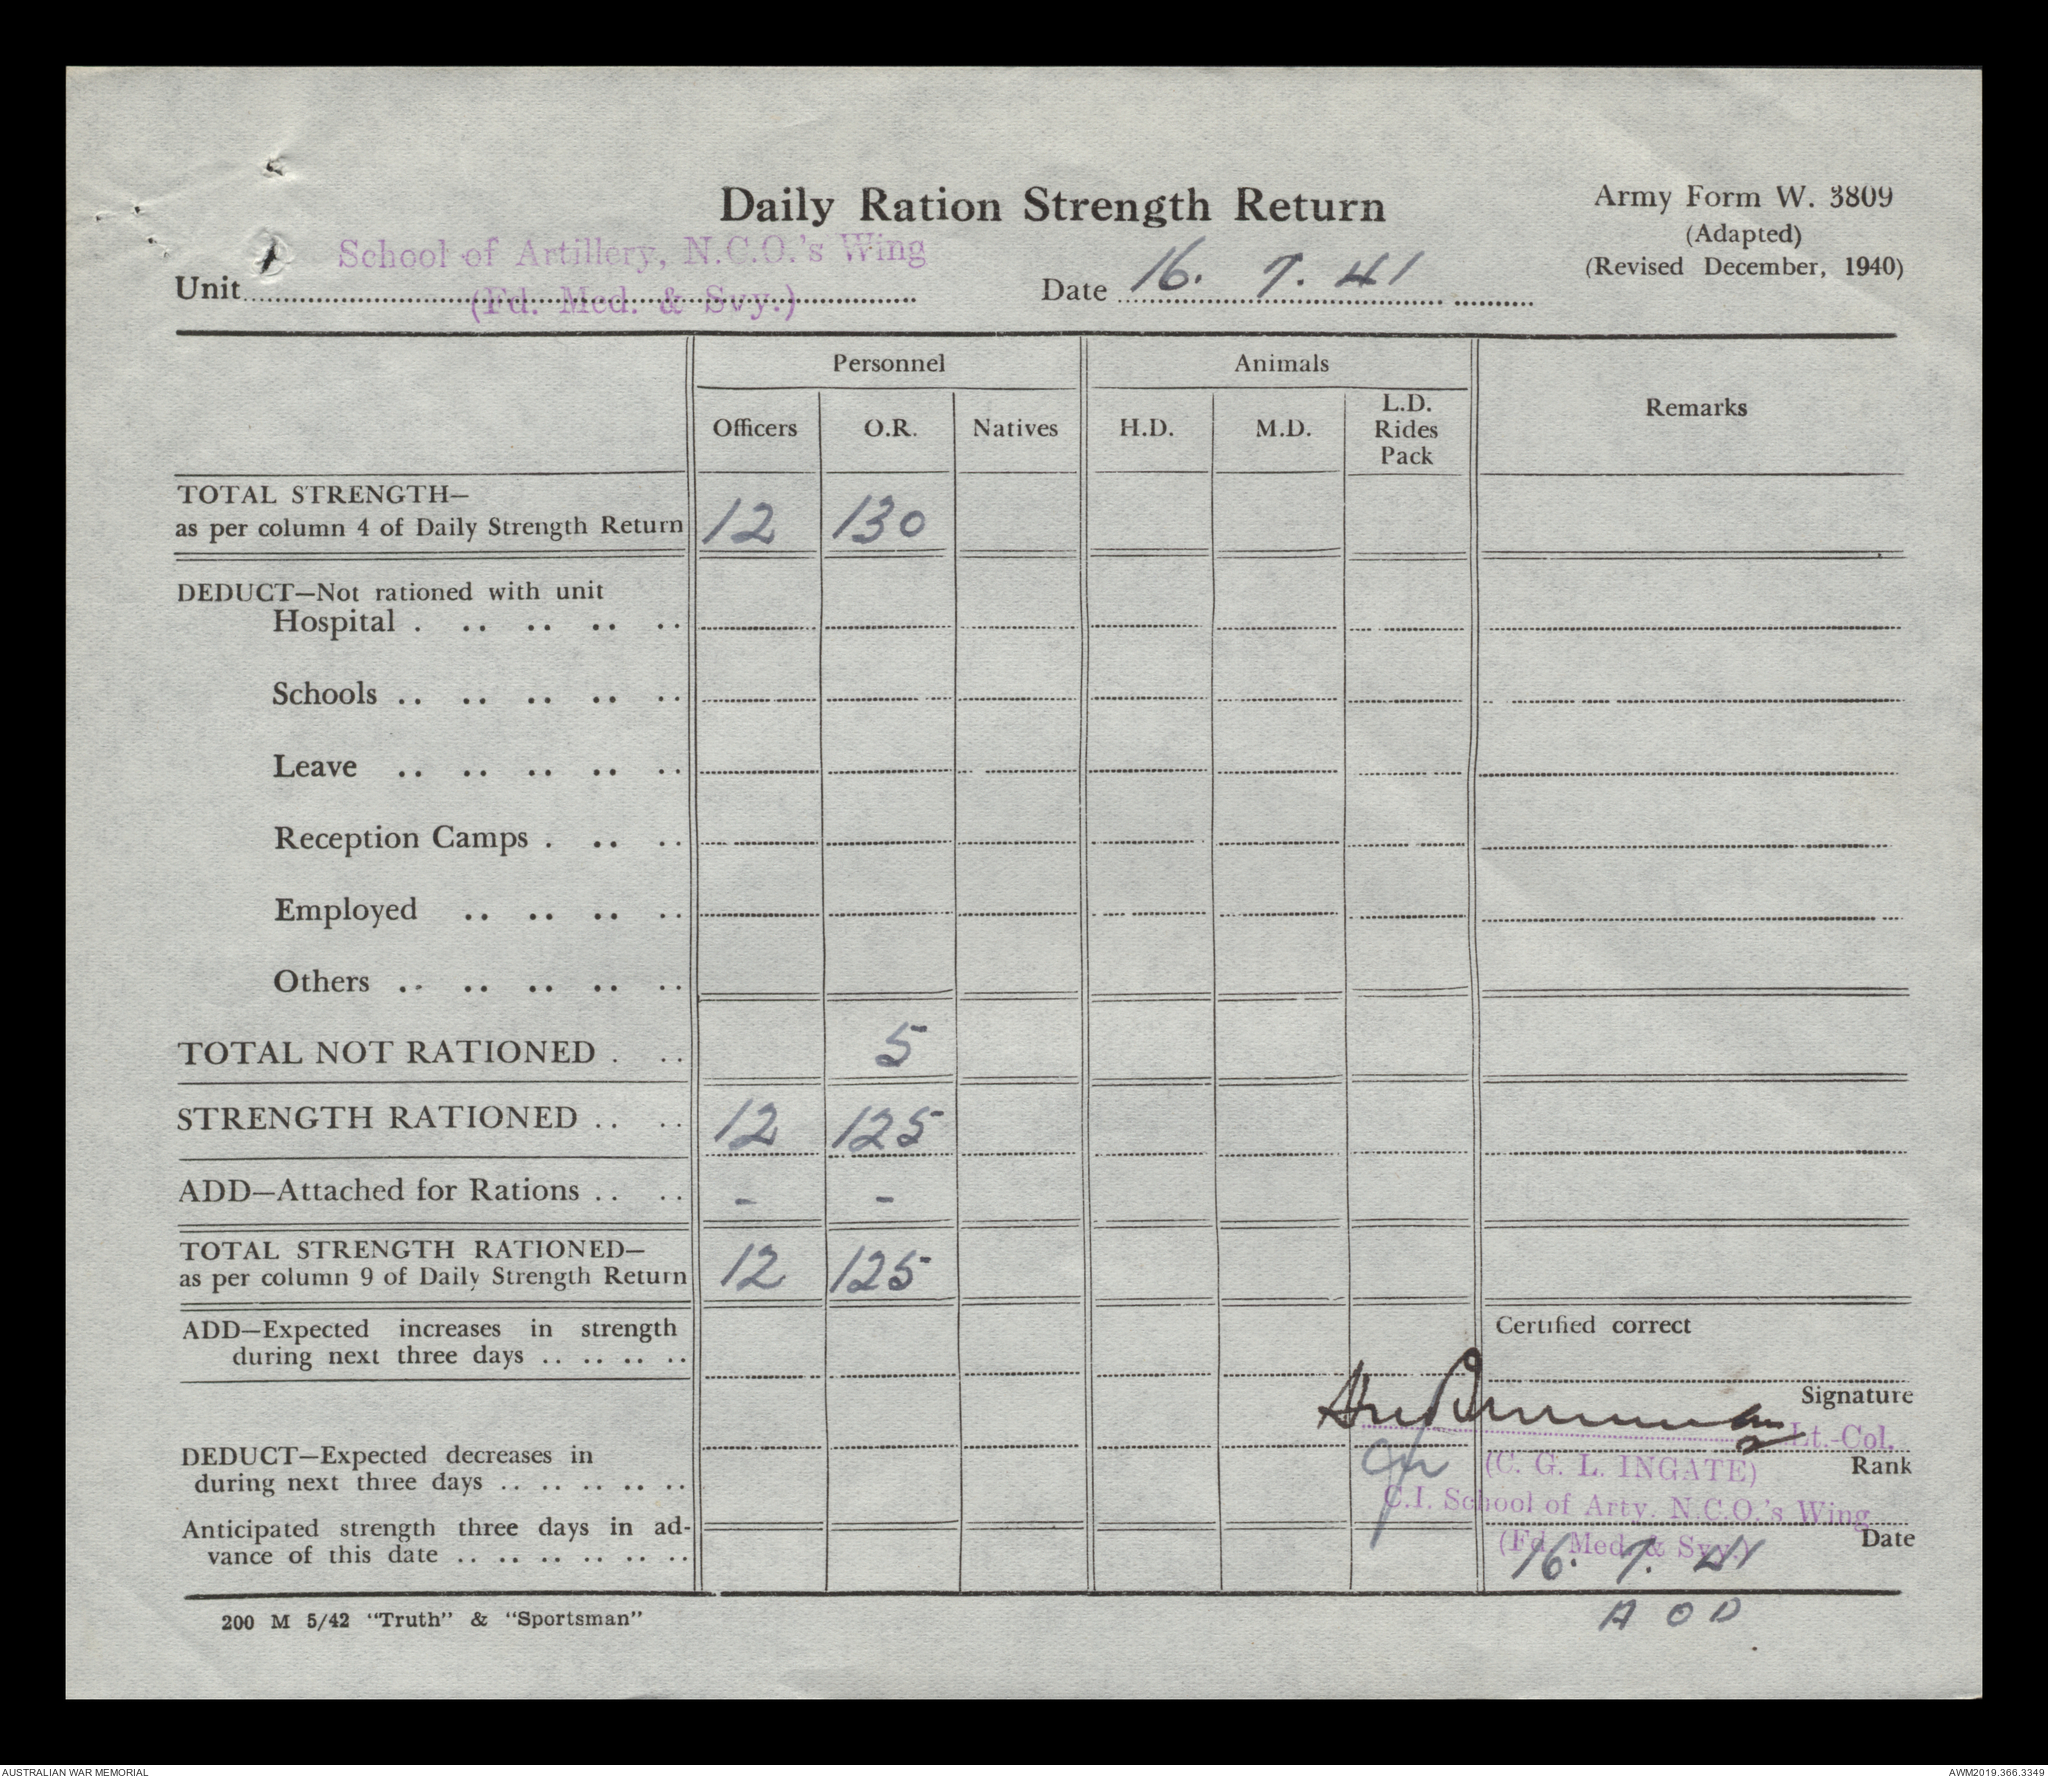 Daily Ration Strength Return
Army Form W. 3809
(Adapted)
(Revised December, 1940)
School of Artillery, N.C.O.'s Wing
Unit
(Fd. Med. & Svy.)
Date 16. 7. 41
Personnel
Animals
Remarks
Officers O.R. Natives H.D. M.D. L.D. Rides Pack
TOTAL STRENGTH—
as per column 4 of Daily Strength Return 12 130
DEDUCT—Not rationed with unit
Hospital . .. .. .. ..
Schools .. .. .. .. ..
Leave .. .. .. .. ..
Reception Camps . .. ..
Employed .. .. .. ..
Others .. .. .. .. ..
TOTAL NOT RATIONED . .. 5
STRENGTH RATIONED .. .. 12 125
ADD—Attached for Rations .. .. - -
TOTAL STRENGTH RATIONED—
as per column 9 of Daily Strength Return 12 125
ADD—Expected increases in strength
during next three days .. .. .. ..
Certified correct
Signature
DEDUCT—Expected decreases in
during next three days .. .. .. .. ..
Lt.-Col.
(C. G. L. INGATE)
Rank
C.I. School of Arty. N.C.O.'s Wing
Anticipated strength three days in ad-
vance of this date .. .. .. .. .. ..
(Fd. Med. & Svy.)
Date
16. 7. 41
A O D
200 M 5/42 "Truth" & "Sportsman"
AUSTRALIAN WAR MEMORIAL
AWM2019.366.3349